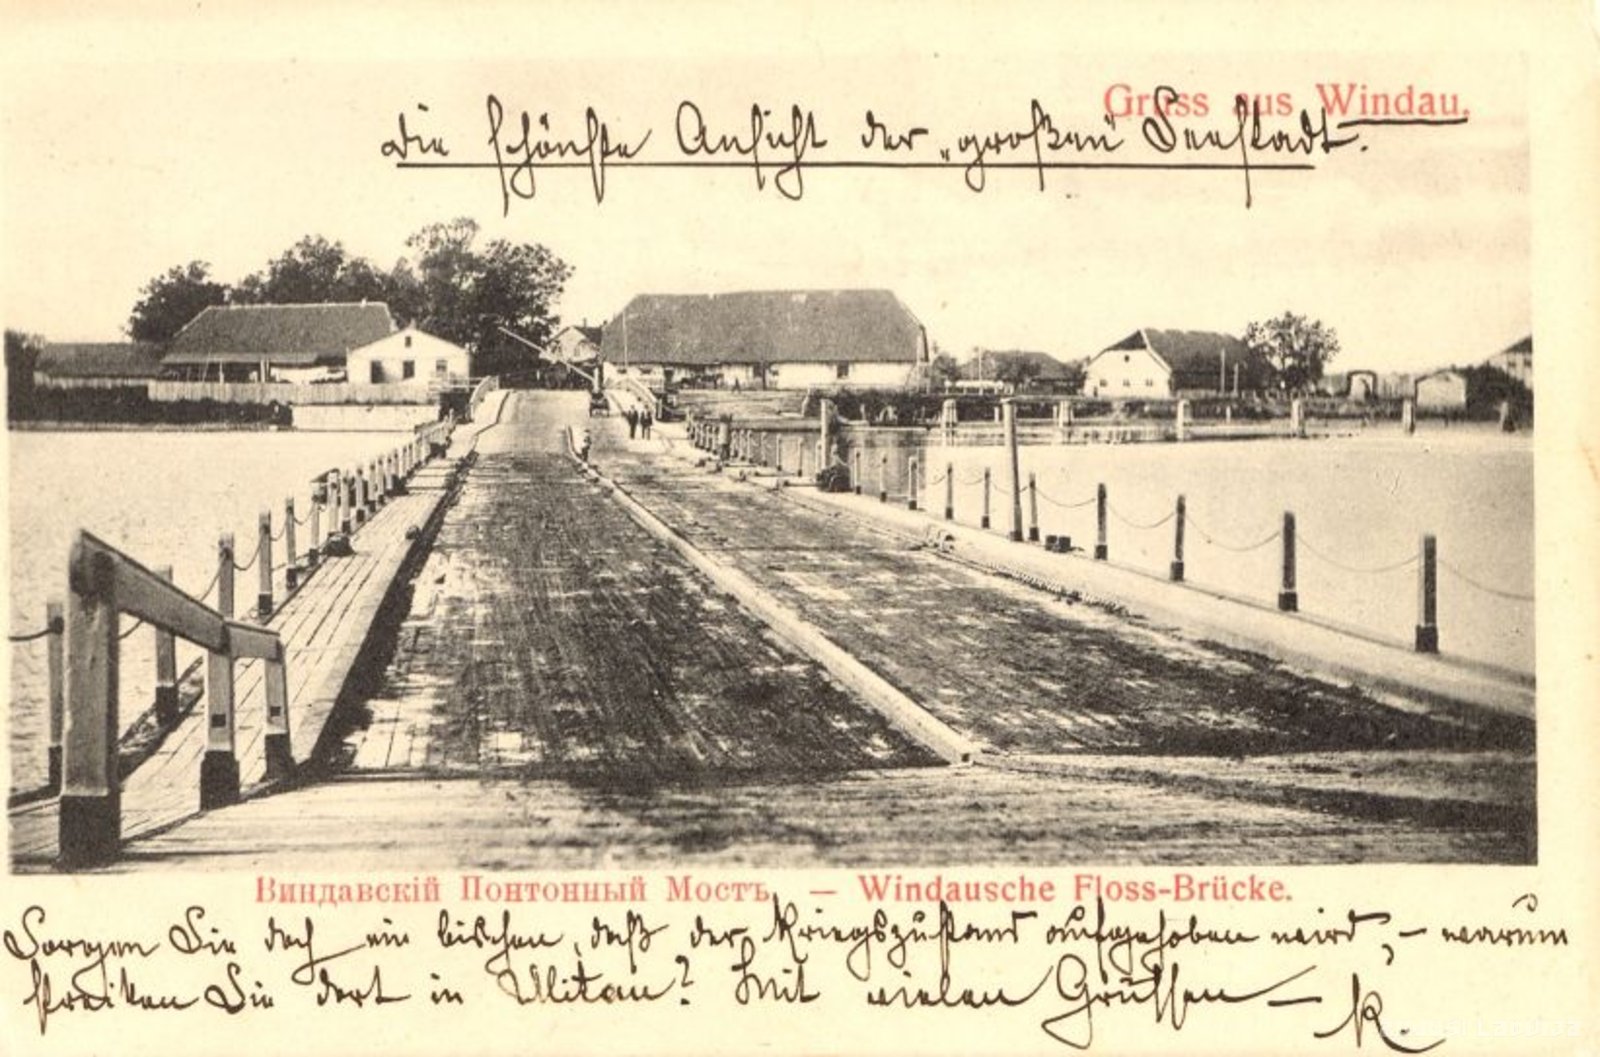 Gruss aus Windau.
Die schönste Ansicht der „großen" Seestadt.
Виндавскій Понтонный Мостъ. — Windausche Floss-Brücke.
Sorgen Sie doch ein bischen, daß der Kriegszustand aufgehoben wird, – warum
streiken Sie dort in Mitau? Mit vielen Grüssen – K.